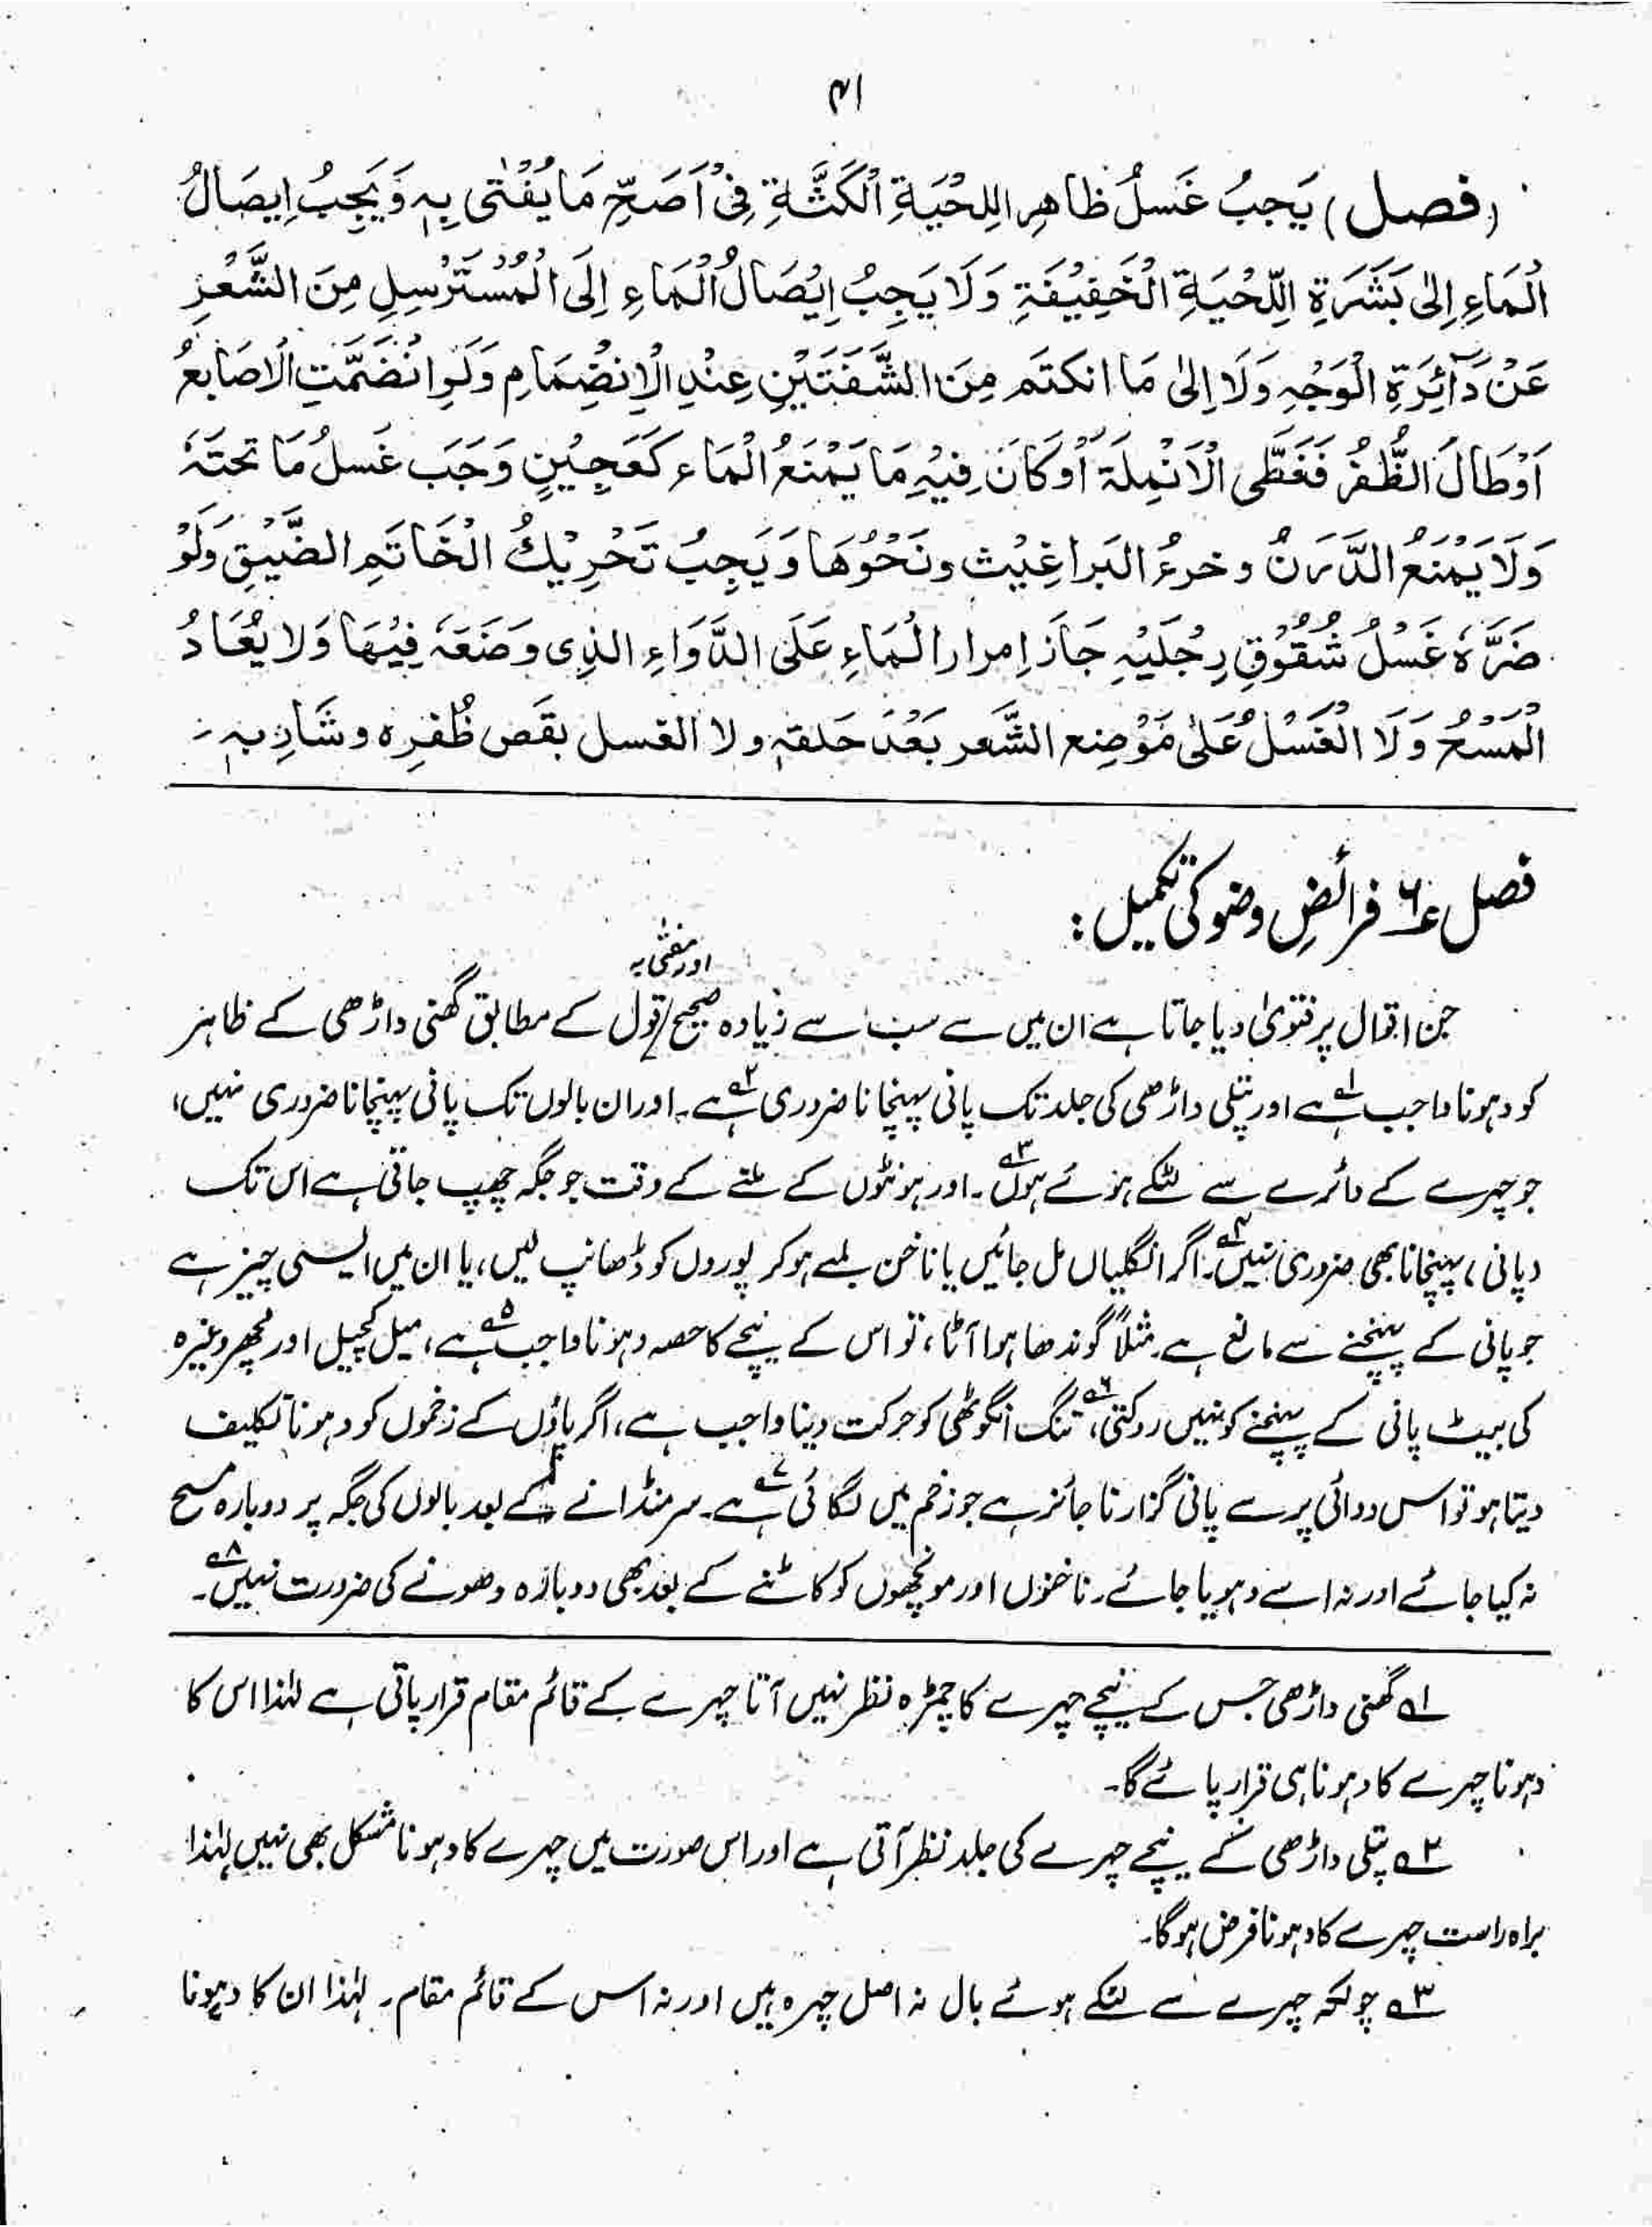 ۴۱
(فصل) يَجِبُ غَسلُ ظاهِرِ اللِحْيَةِ الْكَثَّةِ فِىْ اَصَحِّ مَا يُفْتٰى بِهٖ وَيَجِبُ اِيصَالُ
الْمَاءِ اِلىٰ بَشَرَةِ اللِّحْيَةِ الْخَفِيْفَةِ وَلَا يَجِبُ اِيْصَالُ الْمَاءِ اِلَى الْمُسْتَرْسِلِ مِنَ الشَّعْرِ
عَنْ دَآئِرَةِ الْوَجْهِ وَلَا اِلىٰ مَا انكتَم مِنَ الشَّفَتَيْنِ عِنْدِ الْاِنضِمَامِ وَلَوِ انْضَمَّتِ الْاصَابعُ
اَوْطَالَ الظُّفُرُ فَغَطَّى الْاَنْمِلَةَ اَوْكَانَ فِيْهِ مَا يَمْنَعُ الْمَاء كَعَجِيْنٍ وَجَبَ غَسلُ مَا تحتَهٗ
وَلَا يَمْنَعُ الدَّرَنُ وخرءُ البَراغِيْث ونَحْوُهَا وَيَجِبُ تَحْرِيْكُ الْخَاتَمِ الضَّيِّقِ وَلَوْ
ضَرَّهٗ غَسْلُ شُقُوْقِ رِجْلَيْهِ جَازَ اِمرار الْمَاءِ عَلَى الدَّوَاءِ الذِى وَضَعَهٗ فِيْهَا وَلا يُعَادُ
الْمَسْحُ وَلَا الْغَسْلُ عَلىٰ مَوْضِعِ الشَّعر بَعْدَ حَلقهٖ ولا الغسل بقَص ظُفرِه وشَارِبهٖ۔
فصل ۶ فرائضِ وضو کی تکمیل :
اور مفتیٰ بہ
جن اقوال پر فتویٰ دیا جاتا ہے ان میں سے سب سے زیادہ صحیح / قول کے مطابق گھنی داڑھی کے ظاہر
کو دہونا واجب ہے۱ اور پتلی داڑھی کی جلد تک پانی پہنچانا ضروری ہے۲۔ اور ان بالوں تک پانی پہنچانا ضروری نہیں،
جو چہرے کے دائرے سے لٹکے ہوئے ہوں۳۔ اور ہونٹوں کے ملتے کے وقت جو جگہ چھپ جاتی ہے اس تک
(پانی) پہنچانا بھی ضروری نہیں۴۔ اگر انگلیاں مل جائیں یا ناخن لمبے ہوکر پوروں کو ڈھانپ لیں، یا ان میں ایسی چیز ہے
جو پانی کے پہنچنے سے مانع ہے۔ مثلاً گوندھا ہوا آٹا، تو اس کے نیچے کا حصہ دہونا واجب ہے۵، میل کچیل اور مچھر وغیرہ
کی بیٹ پانی کے پہنچنے کو نہیں روکتی۶، تنگ انگوٹھی کو حرکت دینا واجب ہے، اگر پاؤں کے زخموں کو دہونا تکلیف
دیتا ہو تو اس دوائی پر سے پانی گزارنا جائز ہے جو زخم میں لگائی ہے۷۔ سر منڈانے کے بعد بالوں کی جگہ پر دوبارہ مسح
نہ کیا جائے اور نہ اسے دہویا جائے۔ ناخنوں اور مونچھوں کو کاٹنے کے بعد بھی دوبارہ دھونے کی ضرورت نہیں۸۔
۱؎ گھنی داڑھی جس کے نیچے چہرے کا چمڑہ نظر نہیں آتا چہرے کے قائم مقام قرار پاتی ہے لہٰذا اس کا
دہونا چہرے کا دہونا ہی قرار پائے گا۔
۲؎ پتلی داڑھی کے نیچے چہرے کی جلد نظر آتی ہے اور اس صورت میں چہرے کا دہونا مشکل بھی نہیں لہٰذا
براہ راست چہرے کا دہونا فرض ہوگا۔
۳؎ چونکہ چہرے سے لٹکے ہوئے بال نہ اصل چہرہ ہیں اور نہ اس کے قائم مقام۔ لہٰذا ان کا دہونا